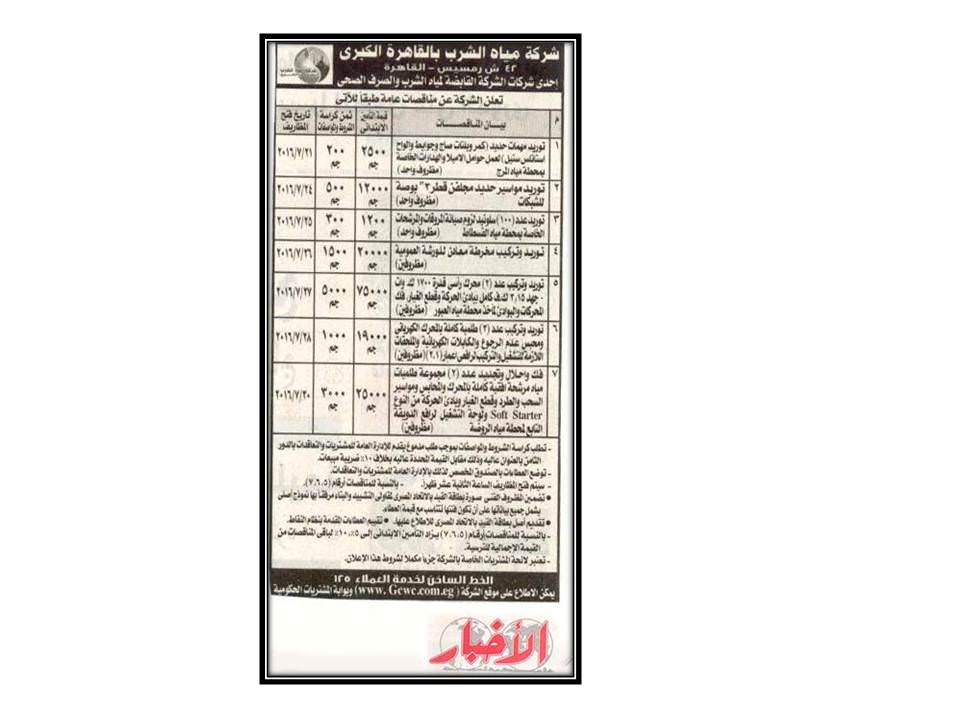 شركة مياه الشرب بالقاهرة الكبرى
٤٢ ش رمسيس - القاهرة
إحدى شركات الشركة القابضة لمياه الشرب والصرف الصحى
تعلن الشركة عن مناقصات عامة طبقاً للآتى
م بيان المناقصات قيمة التأمين الابتدائى ثمن كراسة الشروط والمواصفات تاريخ فتح المظاريف
١ توريد مهمات حديد (كمر وبلتات صاج وجوايط والواح
استانلس ستيل) لعمل حوامل الاميلا والهدارات الخاصة
بمحطة مياه المرج (مظروف واحد) ٢٥٠٠ جم ٢٠٠ جم ٢٠١٦/٧/٢١
٢ توريد مواسير حديد مجلفن قطر ٣" بوصة
للشبكات (مظروف واحد) ١٢٠٠٠ جم ٥٠٠ جم ٢٠١٦/٧/٢٤
٣ توريد عدد (١٠٠) سلونيد لزوم صيانة المروقات والمرشحات
الخاصة بمحطة مياه الفسطاط (مظروف واحد) ١٢٠٠ جم ٣٠٠ جم ٢٠١٦/٧/٢٥
٤ توريد وتركيب مخرطة معادن للورشة العمومية
(مظروفين) ٢٠٠٠٠ جم ١٥٠٠ جم ٢٠١٦/٧/٢٦
٥ توريد وتركيب عدد (٢) محرك رأسى قدرة ١٧٠٠ ك. وات
- جهد ٣,١٥ ك.ف كامل ببادئ الحركة وقطع الغيار، فك
المحركات والبوادئ لمأخذ محطة مياه العبور (مظروفين) ٧٥٠٠٠ جم ٥٠٠٠ جم ٢٠١٦/٧/٢٧
٦ توريد وتركيب عدد (٢) طلمبة كاملة بالمحرك الكهربائى
ومحبس عدم الرجوع والكابلات الكهربائية والملحقات
اللازمة للتشغيل والتركيب لرافعى اعمار (٢،١) (مظروفين) ١٩٠٠٠ جم ١٠٠٠ جم ٢٠١٦/٧/٢٨
٧ فك واحلال وتجديد عدد (٢) مجموعة طلمبات
مياه مرشحة افقية كاملة بالمحرك والمحابس ومواسير
السحب والطرد وقطع الغيار وبادئ الحركة من النوع
Soft Starter ولوحة التشغيل لرافع الدويقة
التابع لمحطة مياه الروضة (مظروفين) ٢٥٠٠٠ جم ٣٠٠٠ جم ٢٠١٦/٧/٣٠
- تطلب كراسة الشروط والمواصفات بموجب طلب مدموغ يقدم للإدارة العامة للمشتريات والتعاقدات بالدور
الثامن بالعنوان عاليه وذلك مقابل القيمة المحددة عاليه بخلاف ١٠٪ ضريبة مبيعات.
- توضع العطاءات بالصندوق المخصص لذلك بالإدارة العامة للمشتريات والتعاقدات.
- سيتم فتح المظاريف الساعة الثانية عشر ظهراً. - بالنسبة للمناقصات أرقام (٧،٦،٥)
● تضمين المظروف الفنى صورة بطاقة القيد بالاتحاد المصرى لمقاولى التشييد والبناء مرفقاً بها نموذج أصلى
يشمل جميع بياناتها على أن تكون فئتها تتناسب مع قيمة العطاء.
● تقديم أصل بطاقة القيد بالاتحاد المصرى للاطلاع عليها. ● تقييم العطاءات المقدمة بنظام النقاط.
- بالنسبة للمناقصات أرقام (٧،٦،٥) يزاد التأمين الابتدائى إلى ٥٪، ١٠٪ لباقى المناقصات من
القيمة الإجمالية للترسية.
- تعتبر لائحة المشتريات الخاصة بالشركة جزءاً مكملاً لشروط هذا الإعلان.
الخط الساخن لخدمة العملاء ١٢٥
يمكن الاطلاع على موقع الشركة (www. Gcwc.com.eg) وبوابة المشتريات الحكومية
الأخبار